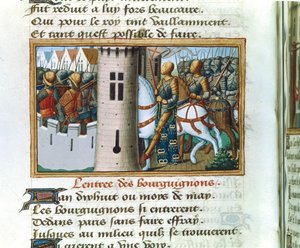 fut reduit a luy fors beaucaire.
Qui pour le roy tint vaillamment.
Et tant quest possible de faire.
Lentree des bourguignons.
Lan dixhuit ou moys de may.
Les Bourguignons si entrerent.
Dedans paris sans faire effray.
Jusques au milieu quilz se trouuerent.
a vne voix